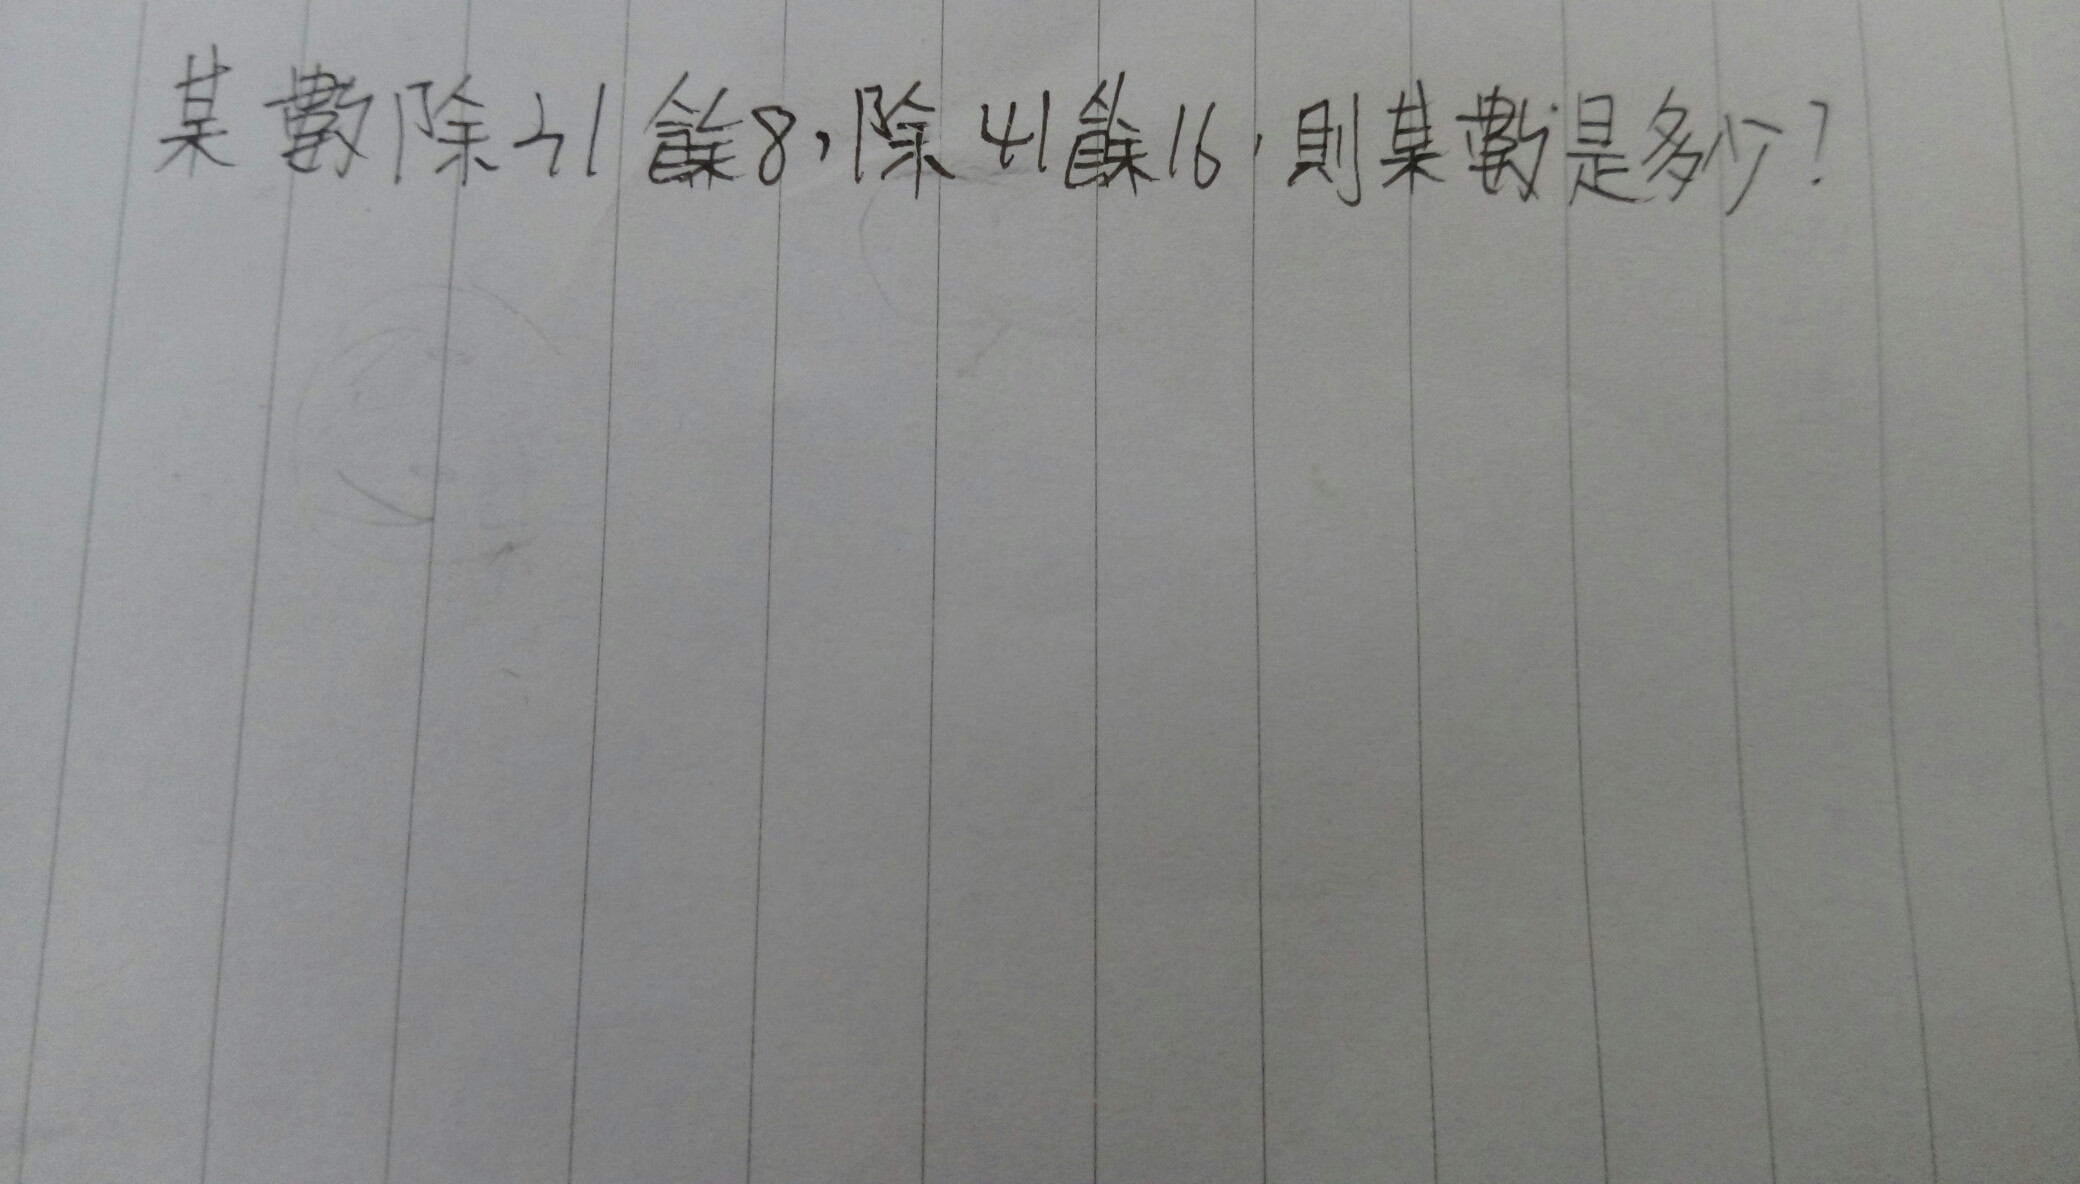 某數除21餘8,除41餘16,則某數是多少?